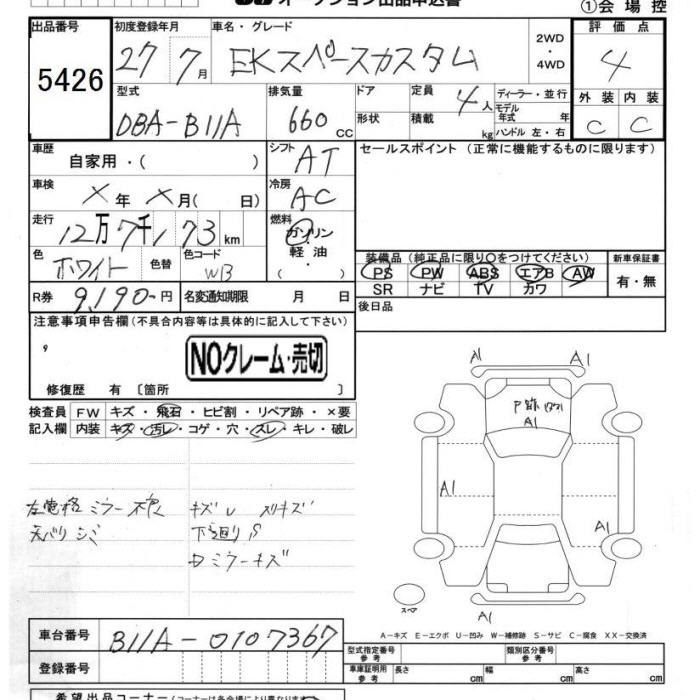 オークション出品申込書 ①会場控
出品番号 初度登録年月 車名・グレード 評価点
5426 27年7月 EKスペースカスタム 2WD・4WD 4
型式 排気量 ドア 定員 ディーラー・並行 外装 内装
DBA-B11A 660cc 形状 4人 積載 kg モデル年式 年 ハンドル 左・右 C C
車歴 自家用・( ) シフト AT セールスポイント (正常に機能するものに限ります)
車検 X年X月( 日) 冷房 AC
走行 12万7千173km 燃料 ガソリン・軽油・( )
色 ホワイト 色替 色コード W13 装備品(純正品に限り○をつけてください) 新車保証書
PS PW ABS エアB AW 有・無
SR ナビ TV カワ
R券 9,190円 名変通知期限 月 日 後日品
注意事項申告欄(不具合内容等は具体的に記入して下さい)
NOクレーム・売切
修復歴 有 〔箇所 〕
検査員 FW キズ・飛石・ヒビ割・リペア跡・×要
記入欄 内装 キズ・汚レ・コゲ・穴・スレ・キレ・破レ
A1 A1
A1
A1 A1
左電格ミラー不良 キズ スリキズ
天バリ シミ 下廻りS
ミラーキズ
スペア
A1
A-キズ E-エクボ U-凹み W-補修跡 S-サビ C-腐食 XX-交換済
車台番号 B11A-0107367 型式指定番号 参考 類別区分番号 参考
登録番号 車庫証明用 参考 長さ cm 幅 cm 高さ cm
希望出品コーナー